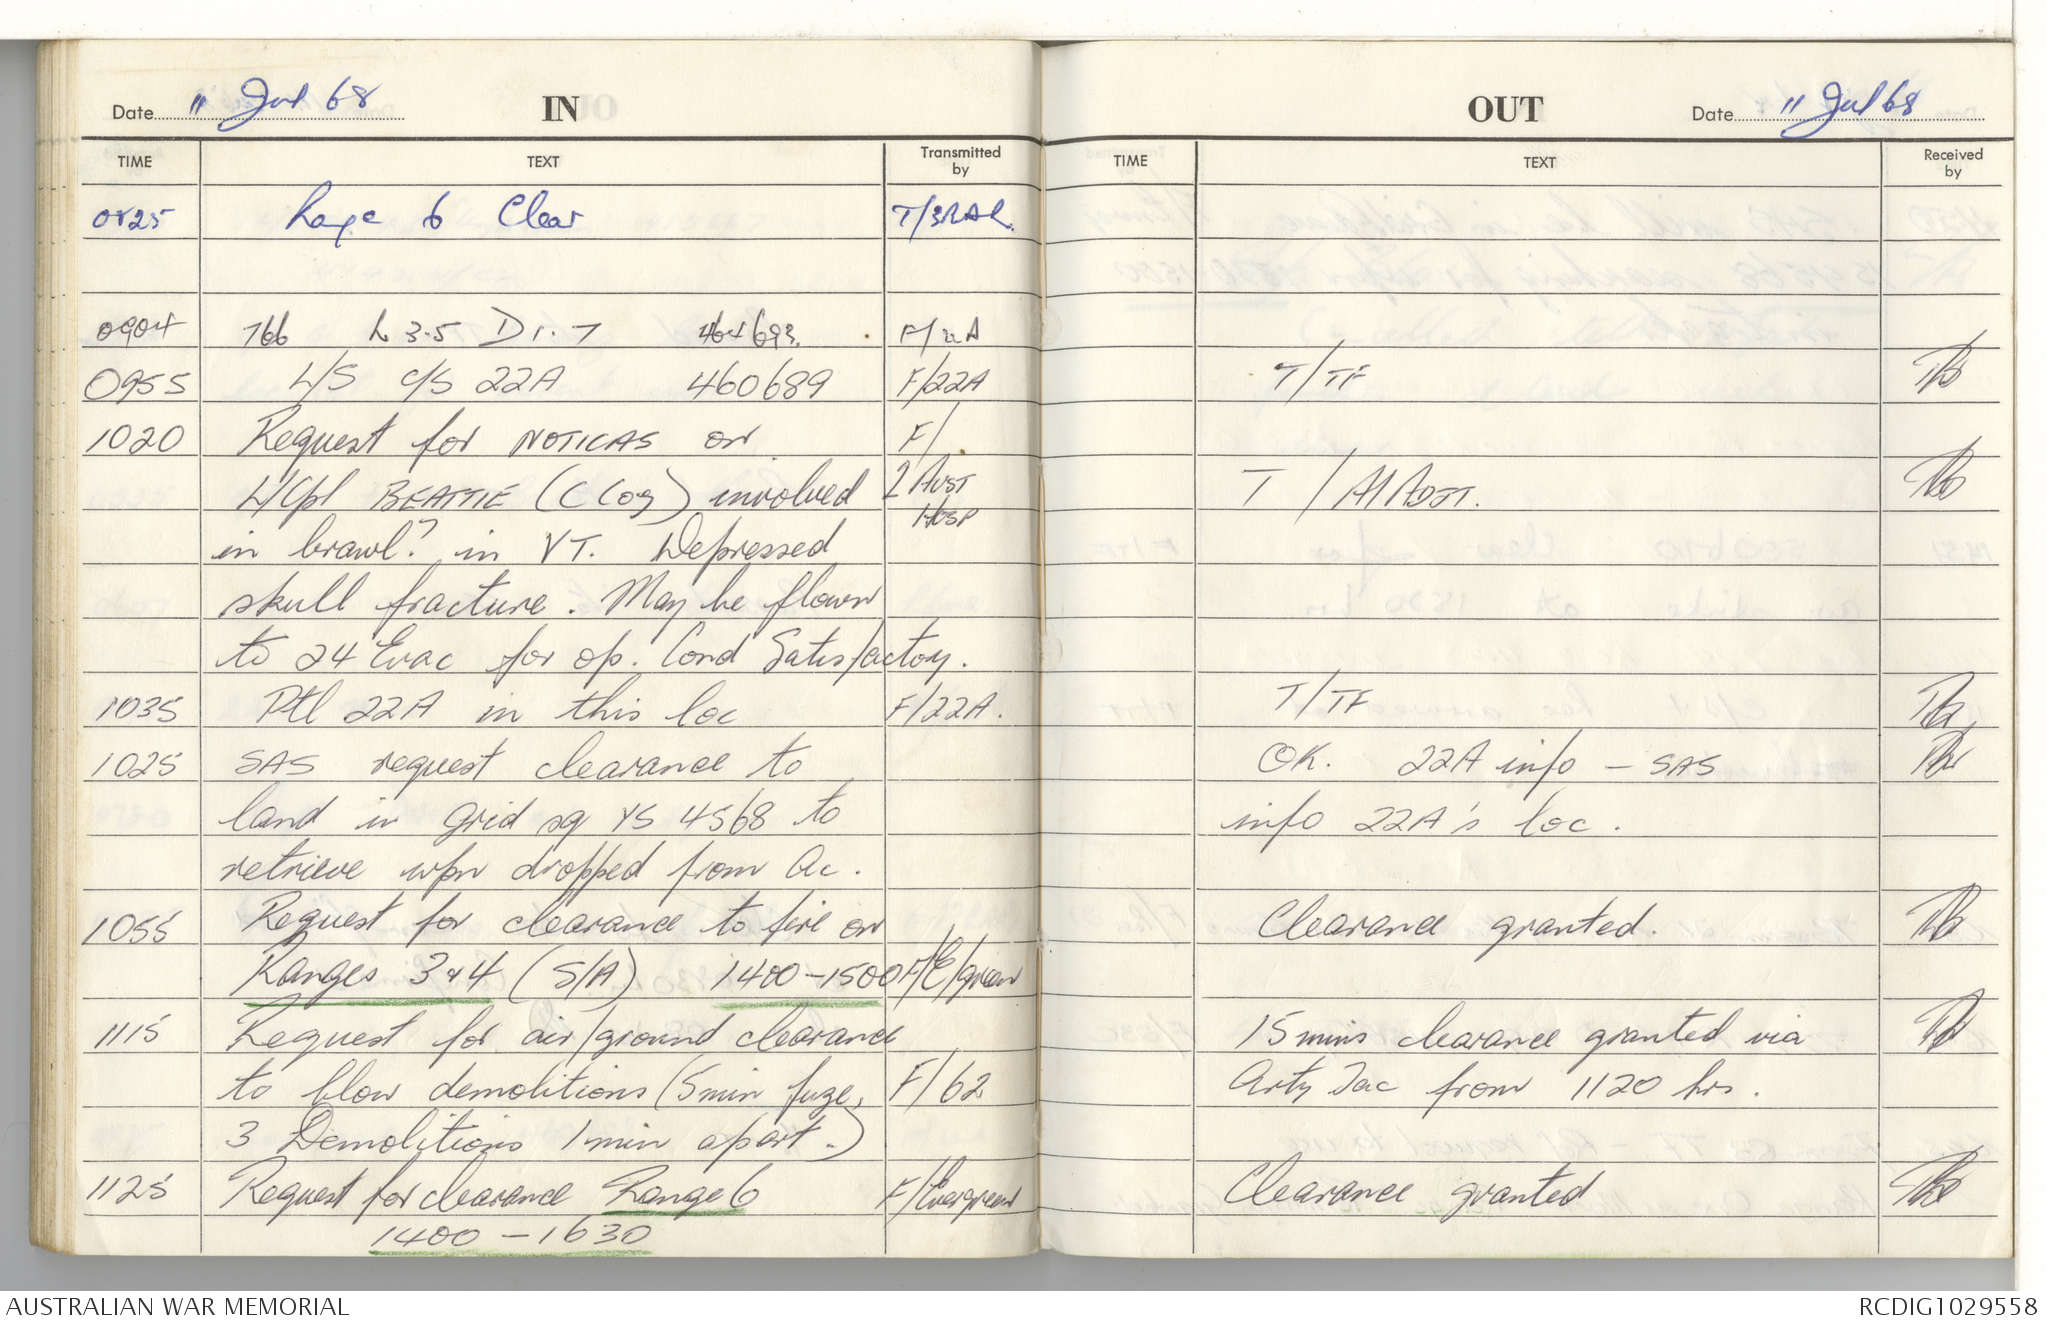 Date 11 Jul 68 IN
TIME TEXT Transmitted by
0825 Range 6 Clear T/3RAR.
0904 766 L 3.5 D 1.7 464693. F/22A
0955 L/S C/S 22A 460689 F/22A
1020 Request for NOTICAS on F/
L/Cpl BEATTIE (C Coy) involved 2 AUST
in brawl? in VT. Depressed HOSP
skull fracture. May be flown
to 24 Evac for op. Cond Satisfactory.
1035 Ptl 22A in this loc F/22A.
1025 SAS request clearance to
land in grid sq YS 4568 to
retrieve wpn dropped from Ac.
1055 Request for clearance to fire on
Ranges 3 & 4 (S/A) 1400-1500 F/E/green
1115 Request for air/ground clearance
to blow demolitions (5 min fuze, F/62
3 Demolitions 1 min apart.)
1125 Request for clearance Range 6 F/Evergreen
1400 - 1630
OUT Date 11 Jul 68
TIME TEXT Received by
T/TF
T/A1 ADJT.
T/TF
OK. 22A info - SAS
info 22A's loc.
Clearance granted.
15 mins clearance granted via
Arty Tac from 1120 hrs.
Clearance granted
AUSTRALIAN WAR MEMORIAL RCDIG1029558